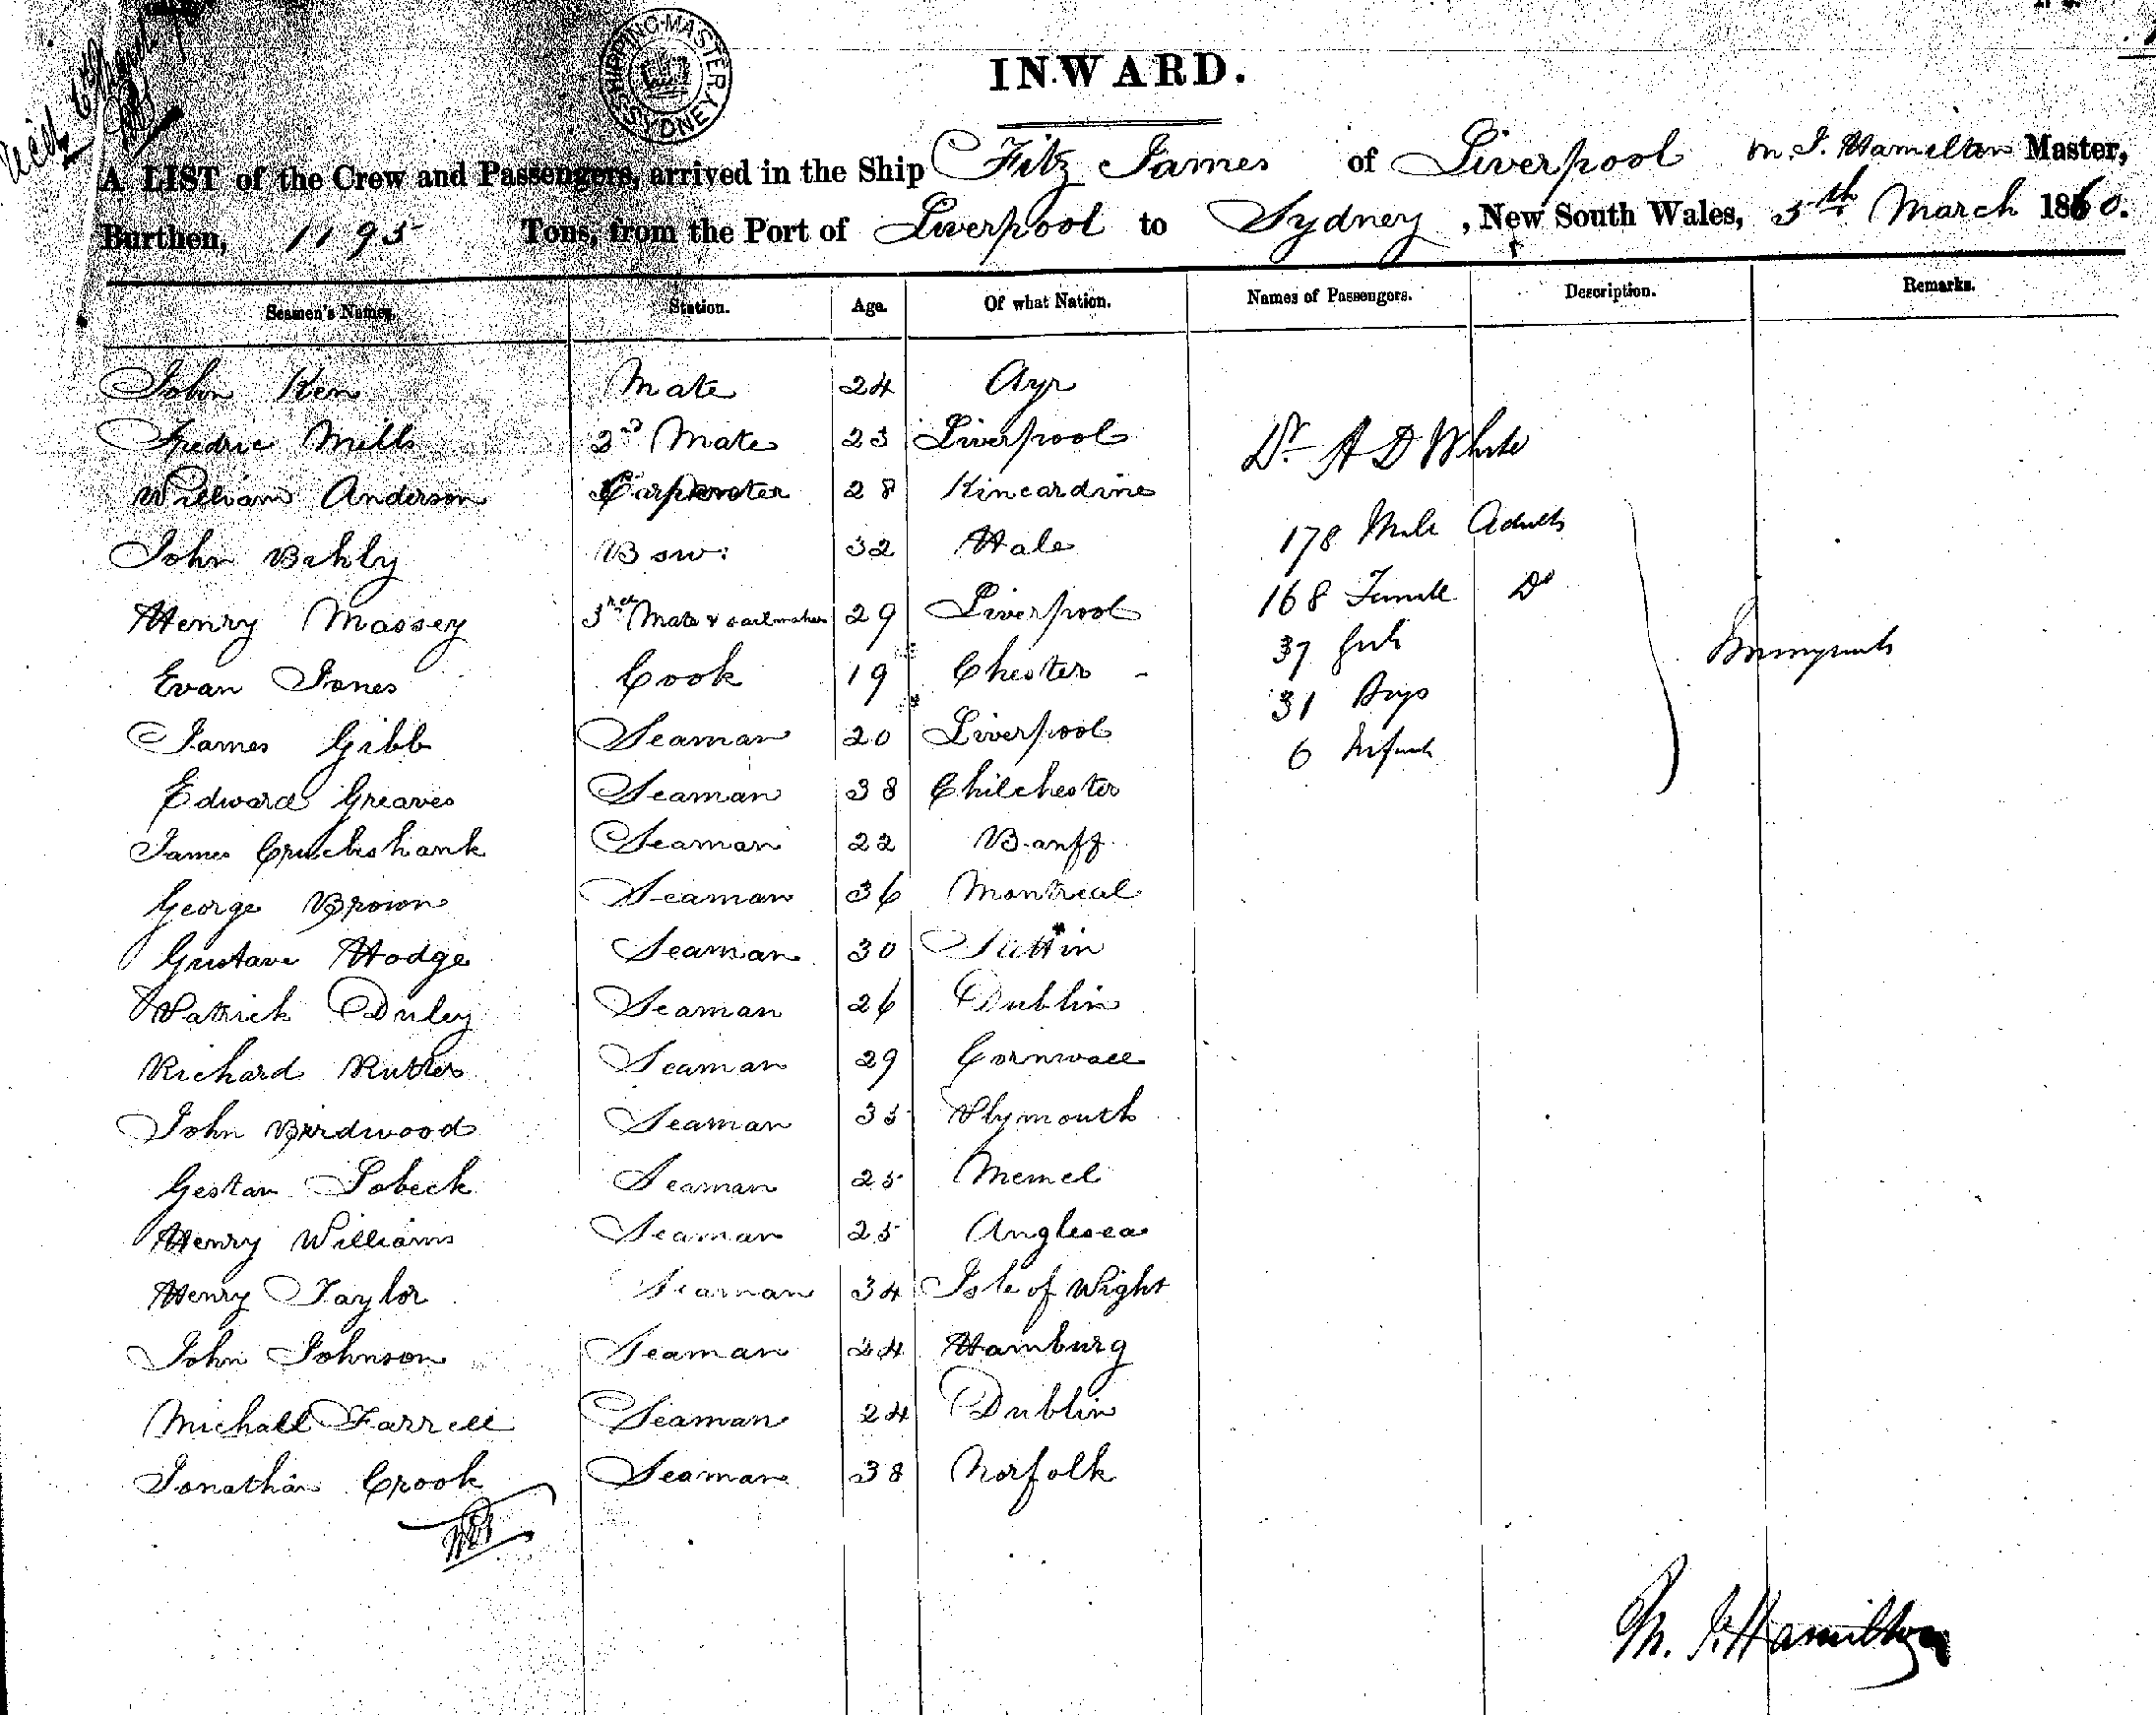 SHIPPING MASTER SYDNEY
INWARD.
A LIST of the Crew and Passengers, arrived in the Ship Fitz James of Liverpool M. J. Hamilton Master,
Burthen, 1195 Tons, from the Port of Liverpool to Sydney, New South Wales, 5th March 1860.
Seamen's Names. Station. Age. Of what Nation. Names of Passengers. Description. Remarks.
John Kerr Mate 24 Ayr
Fredric Mills 2nd Mate 23 Liverpool
Dr. A D White
William Anderson Carpenter 28 Kincardine
John Bahly Bsw: 32 Hale
178 Male Adults
Henry Massey 3rd Mate & sailmaker 29 Liverpool
168 Female Do
Evan Jones Cook 19 Chester -
37 Girls
Immigrants
James Gibb Seaman 20 Liverpool
31 Boys
6 Infants
Edward Greaves Seaman 38 Chilchester
James Cruickshank Seaman 22 Banff
George Brown Seaman 36 Montreal
Gustave Hodge Seaman 30 Stettin
Patrick Duley Seaman 26 Dublin
Richard Rutter Seaman 29 Cornwall
John Birdwood Seaman 35 Plymouth
Gestav Sobeck Seaman 25 Memel
Henry Williams Seaman 25 Anglesea
Henry Taylor Seaman 34 Isle of Wight
John Johnson Seaman 24 Hamburg
Michall Farrell Seaman 24 Dublin
Jonathan Crook Seaman 38 Norfolk
M. J. Hamilton